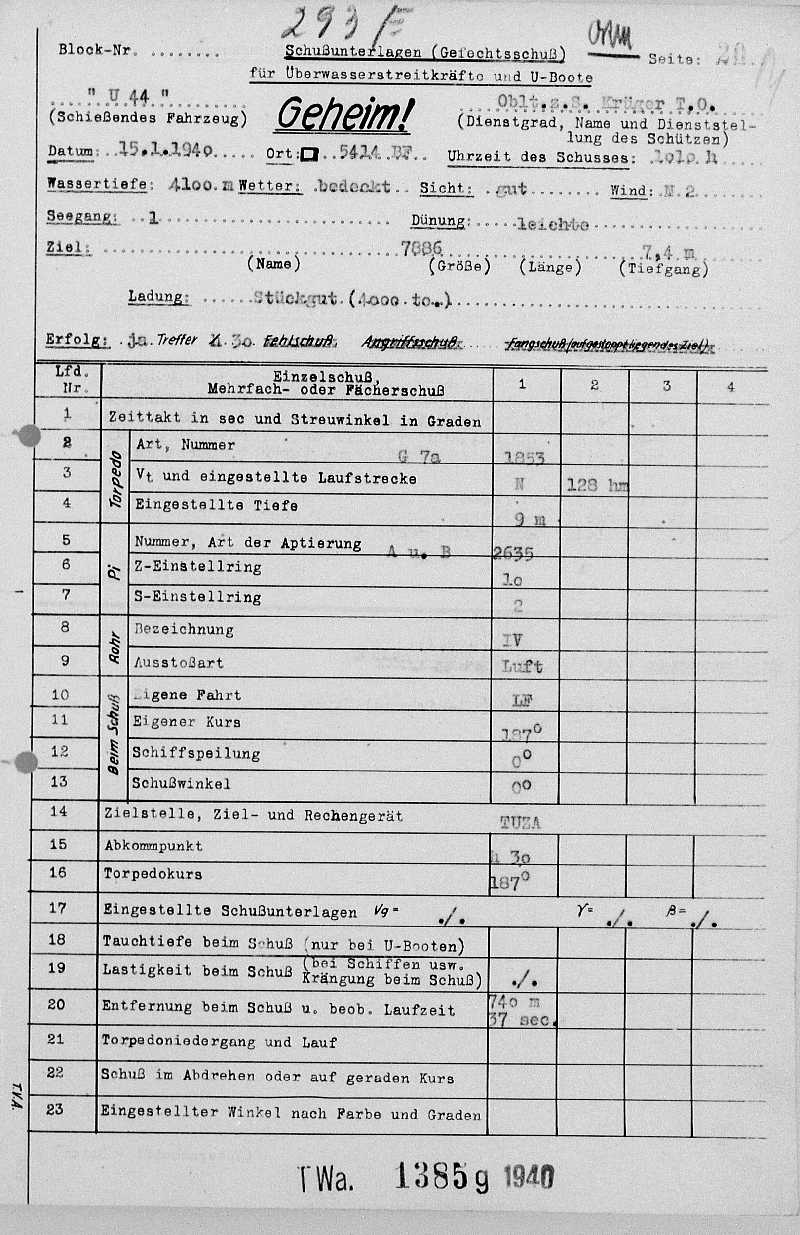 293
Block-Nr. ........ Schußunterlagen (Gefechtsschuß) Seite:
für Überwasserstreitkräfte und U-Boote
" U 44 " Geheim! Oblt.z.S. Krüger T.O.
(Schießendes Fahrzeug) (Dienstgrad, Name und Dienststel-
lung des Schützen)
Datum: 15.1.1940 Ort: 5414 BF Uhrzeit des Schusses: 1010 h
Wassertiefe: 4100 m Wetter: bedeckt Sicht: gut Wind: N 2
Seegang: 1 Dünung: leichte
Ziel: 7886 7,4 m
(Name) (Größe) (Länge) (Tiefgang)
Ladung: Stückgut (4000 to.)
Erfolg: ja Treffer 30 Fehlschuß Angriffsschuß Fangschuß (auf gestoppt liegendes Ziel)
Lfd. Nr. Einzelschuß, Mehrfach- oder Fächerschuß 1 2 3 4
1 Zeittakt in sec und Streuwinkel in Graden
Torpedo
2 Art, Nummer G 7a 1853
3 Vt und eingestellte Laufstrecke N 128 hm
4 Eingestellte Tiefe 9 m
Pi
5 Nummer, Art der Aptierung A u. B 2635
6 Z-Einstellring 10
7 S-Einstellring 2
Rohr
8 Bezeichnung IV
9 Ausstoßart Luft
Beim Schuß
10 Eigene Fahrt LF
11 Eigener Kurs 187°
12 Schiffspeilung 0°
13 Schußwinkel 0°
14 Zielstelle, Ziel- und Rechengerät TUZA
15 Abkommpunkt h 30
16 Torpedokurs 187°
17 Eingestellte Schußunterlagen Vg= ./. γ= ./. β= ./.
18 Tauchtiefe beim Schuß (nur bei U-Booten)
19 Lastigkeit beim Schuß (bei Schiffen usw. Krängung beim Schuß) ./.
20 Entfernung beim Schuß u. beob. Laufzeit 740 m 37 sec.
21 Torpedoniedergang und Lauf
22 Schuß im Abdrehen oder auf geraden Kurs
23 Eingestellter Winkel nach Farbe und Graden
TKA.
TWa. 1385g 1940